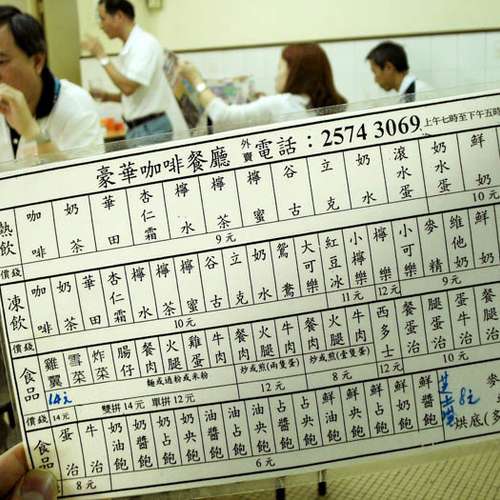 豪華咖啡餐廳 外賣電話：2574 3069 上午七時至下午五時
熱飲 咖啡 奶茶 華田 杏仁霜 檸水 檸茶 檸蜜 谷古 立克 奶水 滾水蛋 奶水蛋 鮮
價錢 9元 10元
凍飲 咖啡 奶茶 華田 杏仁霜 檸水 檸茶 檸蜜 谷古 立克 奶水 鴛鴦 大可樂 紅豆冰 小檸樂 檸樂 小可樂 麥精 維他奶 鮮奶
價錢 10元 11元 12元 9元
食品 雞翼 雪菜 炸菜 腸仔 餐肉 火腿 雞蛋 牛肉 餐肉 火腿 牛肉 餐肉 火腿 牛肉 西多士 餐治 腿治 蛋治 牛治
麵或通粉或米粉 炒或煎(兩隻蛋) 炒或煎(壹隻蛋)
價錢 14元 14元 雙拼14元 單拼12元 12元 8元 12元 10元
食品 蛋治 牛治 奶油飽 奶醬飽 占央飽 油央飽 油占飽 占央飽 油醬飽 鮮油飽 鮮占飽 鮮奶飽 鮮醬飽 8元
8元 6元 烘底(多